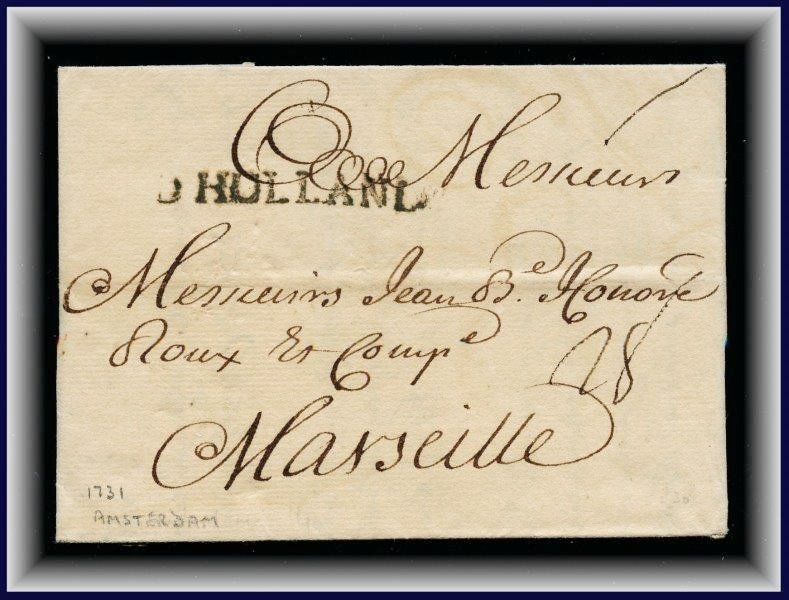 Messieurs
D HOLLAND
Messieurs Jean Bᵉ. Honoré
Roux Et Compᵉ
28
Marseille
1731
AMSTERDAM